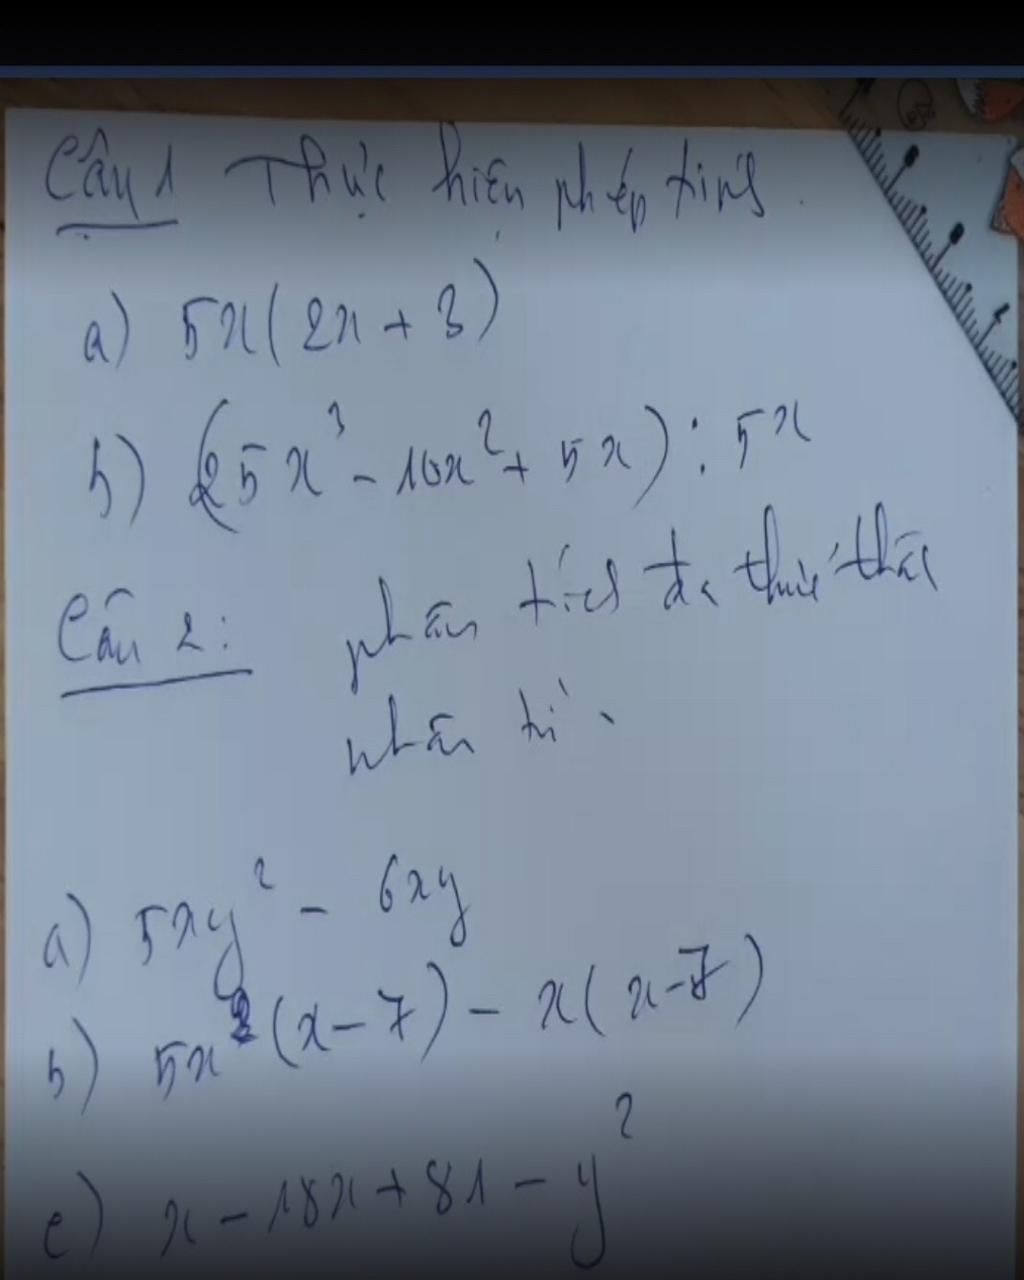 Câu 1 Thực hiện phép tính.
a) 5x(2x + 3)
b) (25x³ - 10x² + 5x) : 5x
Câu 2: phân tích đa thức thành
nhân tử.
a) 5xy² - 6xy
b) 5x²(x - 7) - x(x - 7)
c) x - 18x + 81 - y²